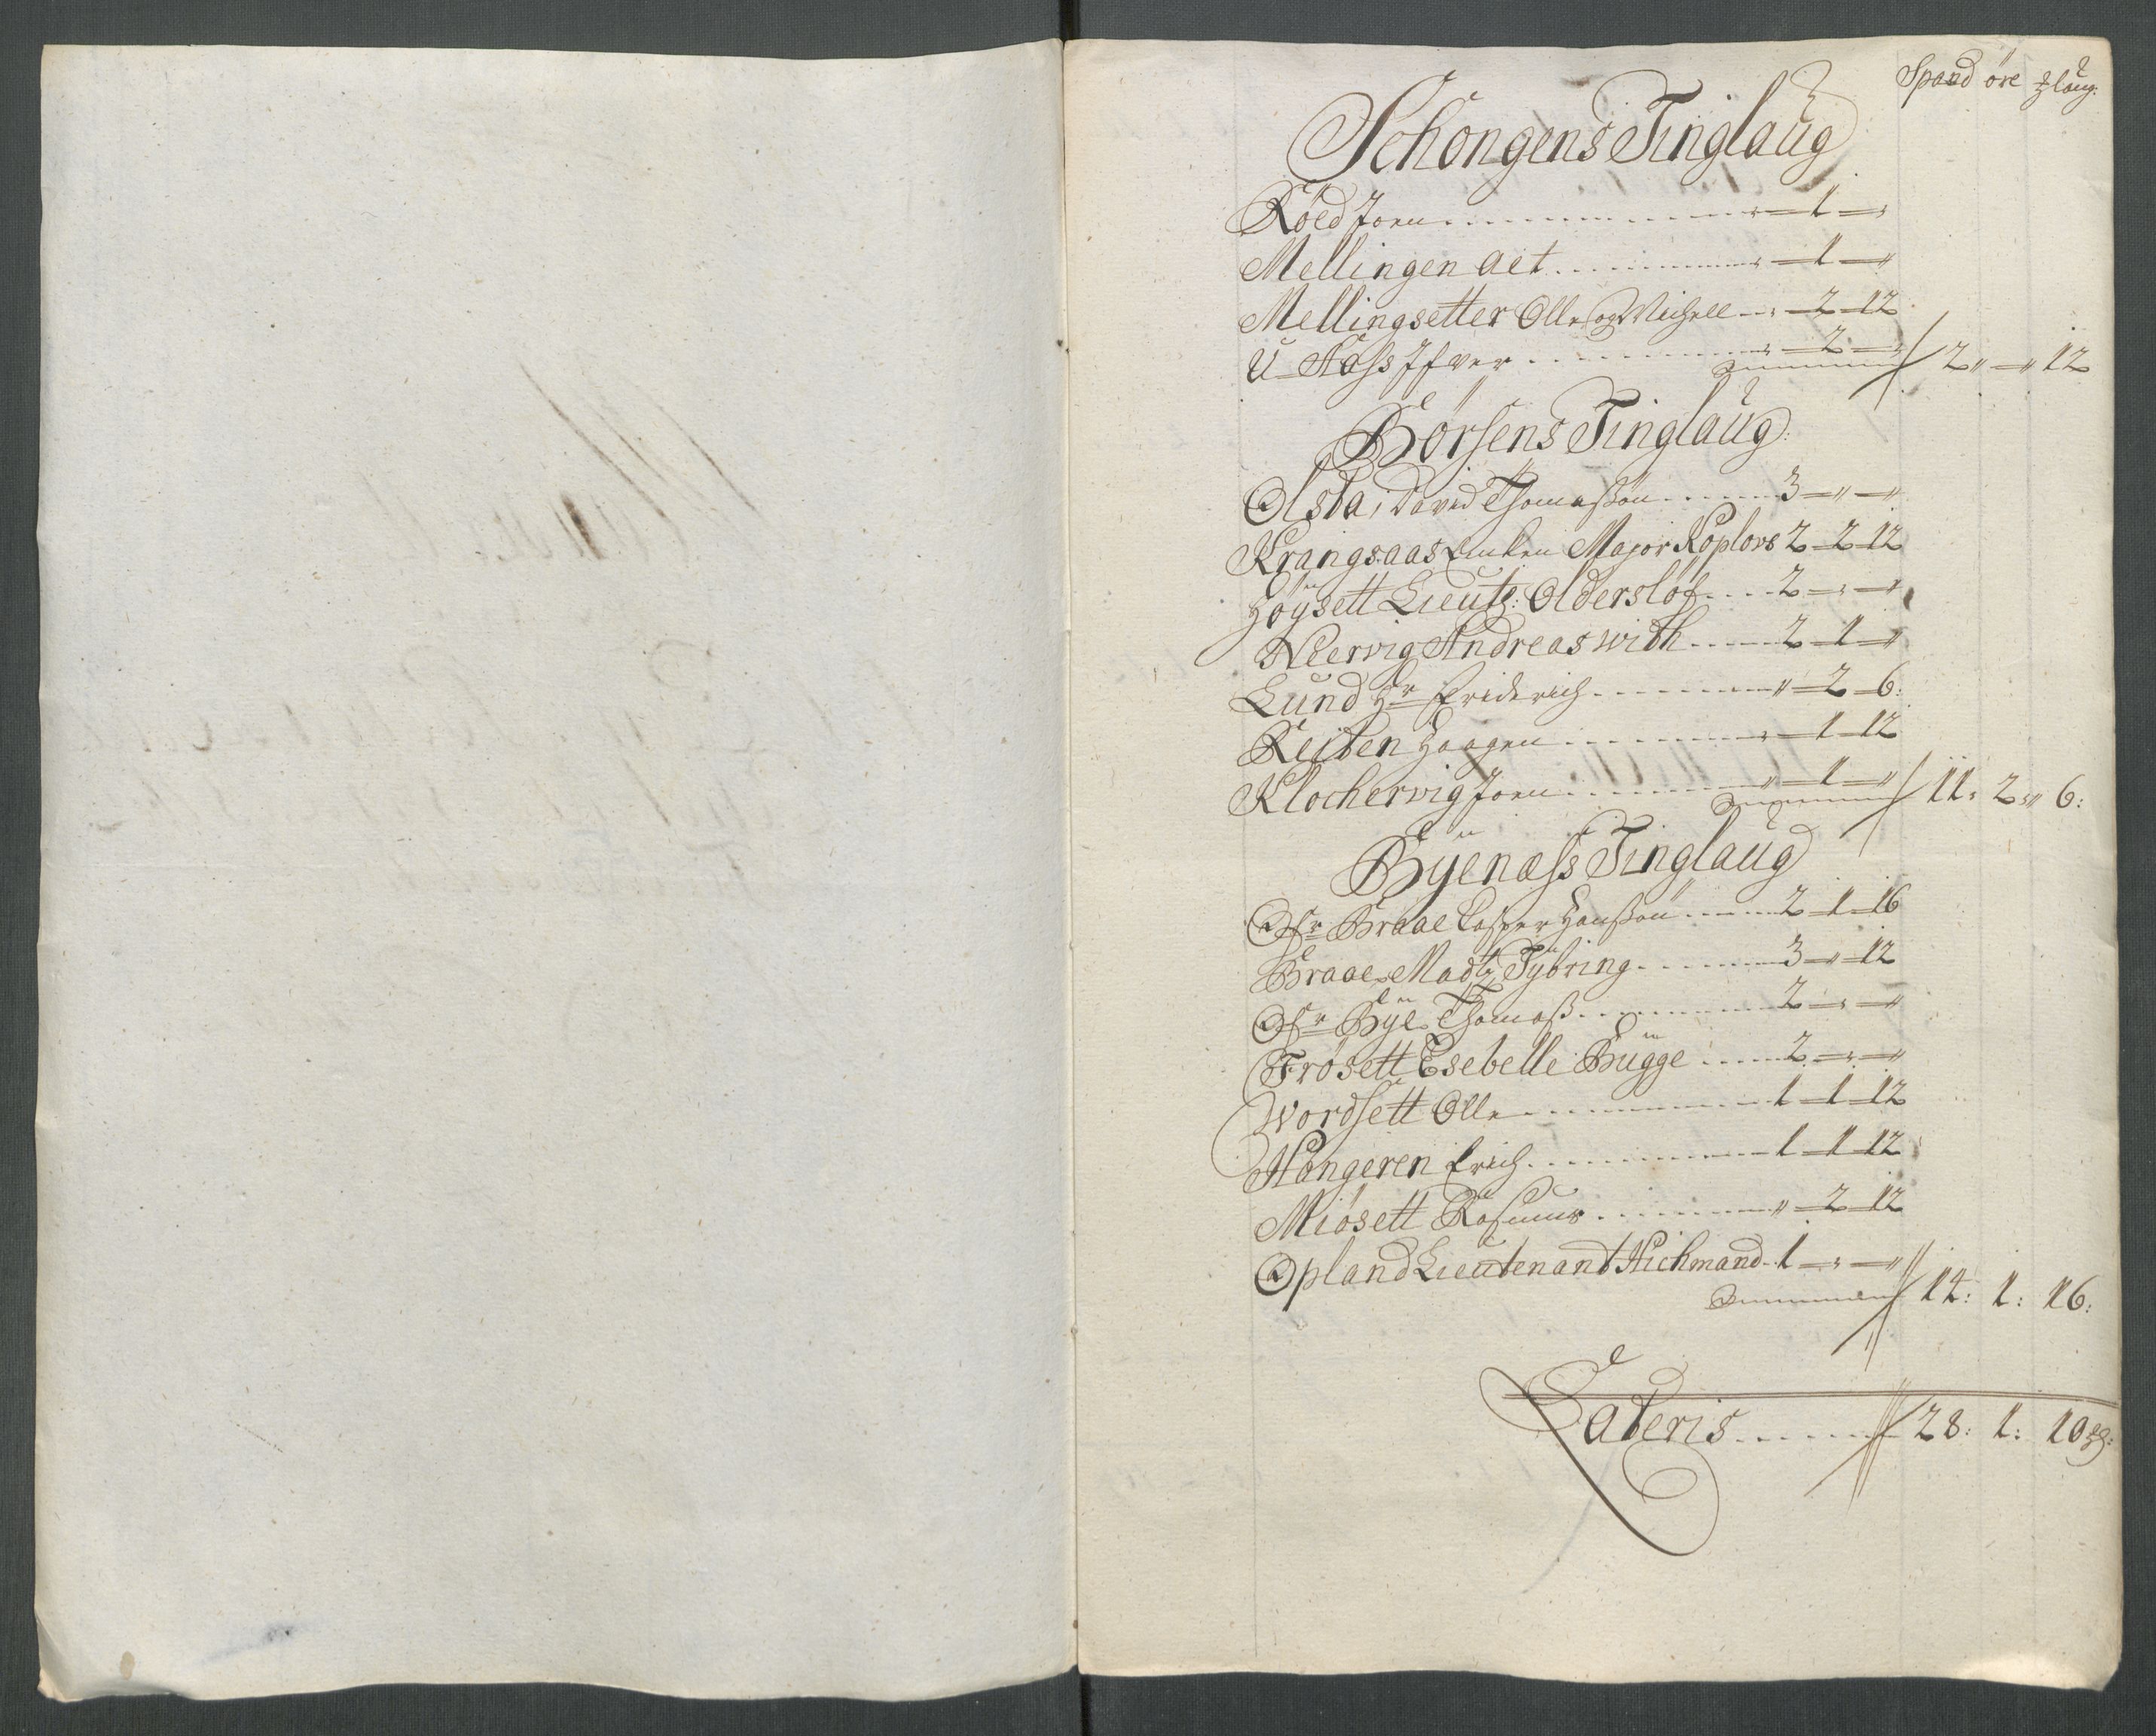 Spand öre ʒlaug:
Schongens Tinglaug
Röed Joen . . . . . . . . . . " — 1 — "
Mellingen Aet . . . . . . . . " — 1 — "
Mellingsetter Olle og Michell . . " — 2 — 12
U Næss Ifver . . . . . . . . " — 2 — "
Summa 2 " — " 12
Börsens Tinglaug:
Olsta, David Thomasßön . . . . 3 — " — "
Krangsaas Enken Major Köplovs 2 — 2 — 12
Höÿsett Lieutn: Olderslöf . . . . 2 — " — "
Neervig Andreas With . . . . 2 — 1 — "
Lund Hr Friderich . . . . . . " — 2 — 6:
Reiten Haagen . . . . . . . . " — 1 — 12
Klochervig Joen . . . . . . . . " — 1 — "
Summa 11: 2 " 6:
Bÿenæss Tinglaug
Ofr Braae Casper Hanßön . . . . 2 — 1 — 16
Braae Madtz Tÿbring . . . . . . 3 — " — 12
Ofr Bÿe Thomaß . . . . . . . . 2 — " — "
Frösett Esebelle Bügge . . . . 2 — " — "
Wordsett Olle . . . . . . . . 1 — 1 — 12
Hangeren Erich . . . . . . . . 1 — 1 — 12
Miösett Rasmus . . . . . . . . " — 2 — 12
Opland Lieutenant Hichmand . 1 — " — "
Summa 14: 1: 16:
Lateris . . . . . . 28: 1: 10